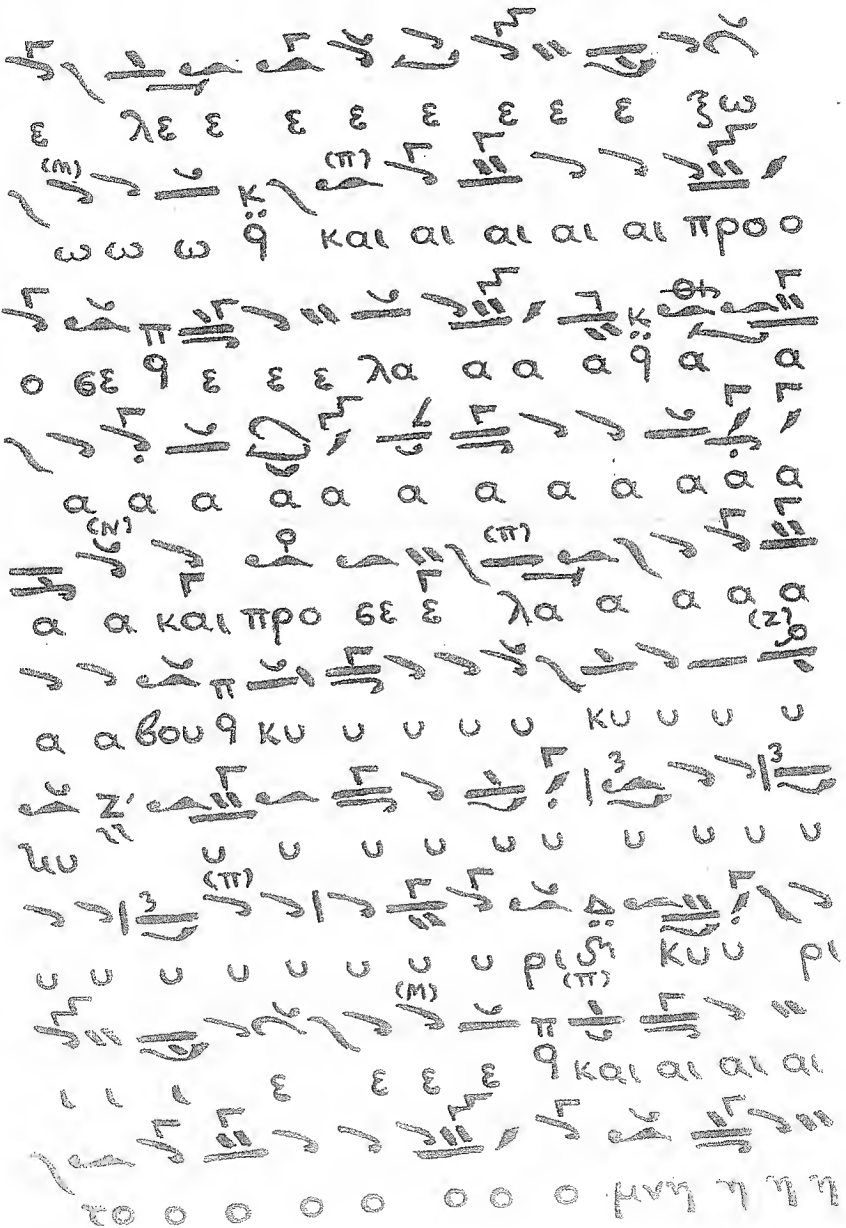 ε λε ε ε ε ε ε ε ε ξω
(Μ) Κ (Π)
ω ω ω q και αι αι αι αι προ ο
π Κ
ο σε q ε ε ε λα α α α q α α
α α α α α α α α α α α α
(Ν) (Π)
α α και προ σε ε λα α α α α
π (Ζ)
α α βου q κυ υ υ υ υ κυ υ υ υ
Ζ' 3 3
κυ υ υ υ υ υ υ υ υ υ υ
3 (Π) Δ
υ υ υ υ υ υ υ υ ρι κυ υ ρι
(Μ) π (Π)
ι ι ι ε ε ε ε q και αι αι αι
το ο ο ο ο ο ο ο μνη η η η